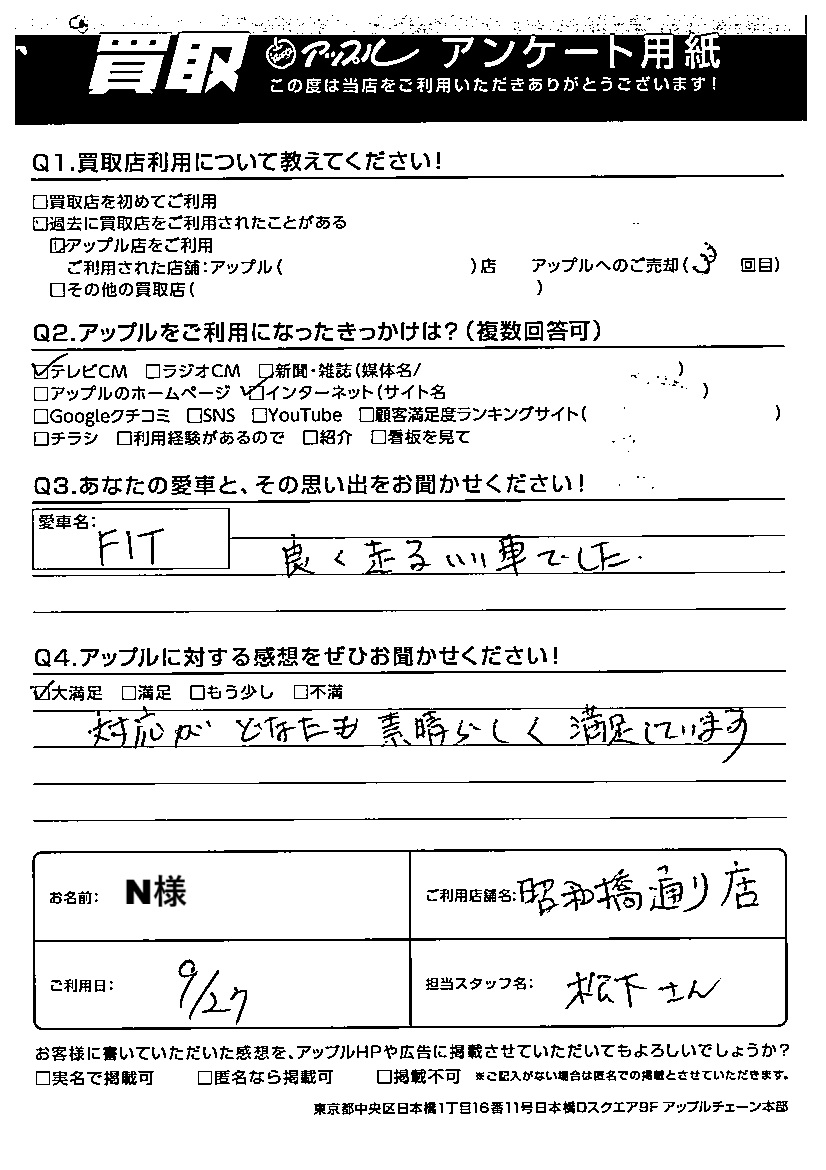 買取 アップル アンケート用紙
この度は当店をご利用いただきありがとうございます!
Q1.買取店利用について教えてください!
□買取店を初めてご利用
□過去に買取店をご利用されたことがある
□アップル店をご利用
ご利用された店舗:アップル( )店 アップルへのご売却( 3 回目)
□その他の買取店( )
Q2.アップルをご利用になったきっかけは?(複数回答可)
☑テレビCM □ラジオCM □新聞・雑誌(媒体名/ )
□アップルのホームページ ☑インターネット(サイト名 )
□Googleクチコミ □SNS □YouTube □顧客満足度ランキングサイト( )
□チラシ □利用経験があるので □紹介 □看板を見て
Q3.あなたの愛車と、その思い出をお聞かせください!
愛車名:
FIT 良く走るいい車でした.
Q4.アップルに対する感想をぜひお聞かせください!
☑大満足 □満足 □もう少し □不満
対応が どなたも 素晴らしく 満足しています
お名前: N様 ご利用店舗名: 昭和橋通り店
ご利用日: 9/27 担当スタッフ名: 松下さん
お客様に書いていただいた感想を、アップルHPや広告に掲載させていただいてもよろしいでしょうか?
□実名で掲載可 □匿名なら掲載可 □掲載不可 ※ご記入がない場合は匿名での掲載とさせていただきます。
東京都中央区日本橋1丁目16番11号日本橋Dスクエア9F アップルチェーン本部